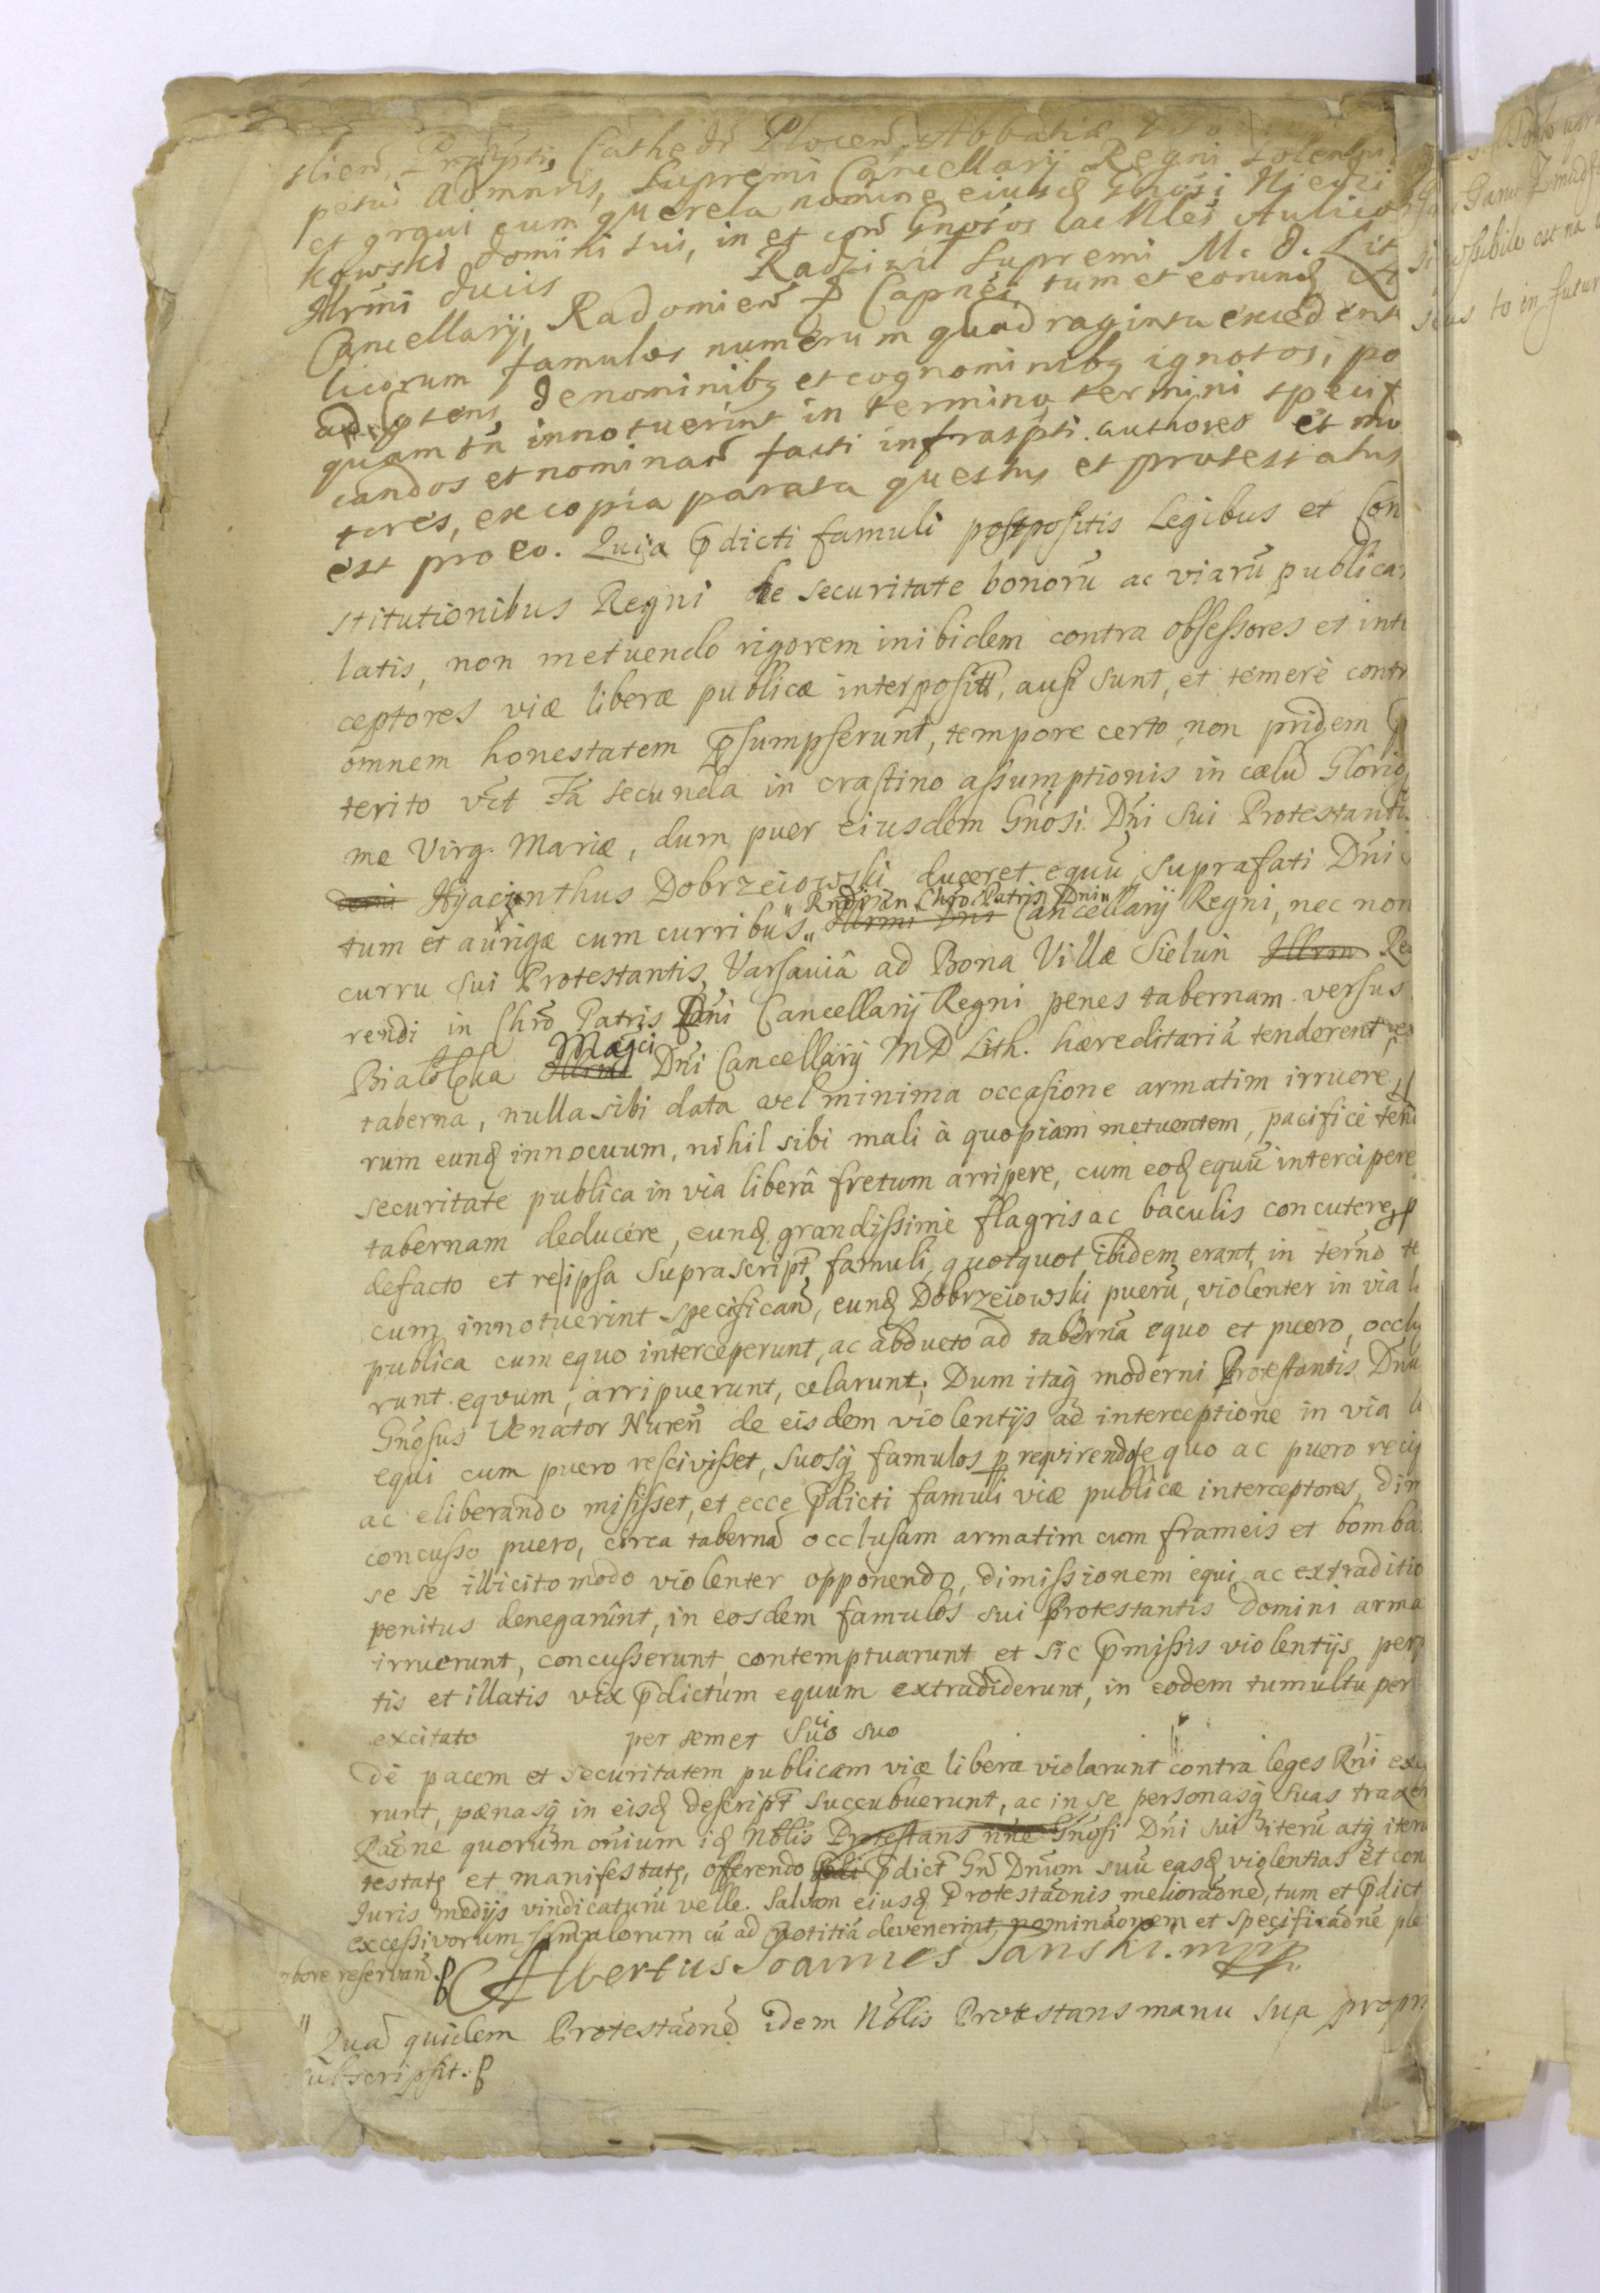 Cathedr Plocen Abbatiæ
petui Admnris, Supremi Cancellarij Regni solenniter
et grãui cum querela nomine eiusd Gnosi Niedzi
kowski domini sui, in et contra Gnosos ac Nles Aulico
Illrmi ducis Radziwil Supremi M. D. Lit
Cancellarij, Radomien & Capnei tum et eorund
licorum famulos numerum quadraginta excedent
ad ptens de nominibz et cognominibz ignotos, po
quam tn innotuerint in termino termini specif
candos et nominan facti infraspti authores et mo
tores, ex copia parata questus et protestatus
est pro eo. Quia pdicti famuli postpositis Legibus et Con
stitutionibus Regni de securitate bonorũ ac viarũ publicar
latis, non metuendo rigorem inibidem contra obsessores et inte
ceptores viæ liberæ publicæ interpositũ, ausi sunt, et temerè contr
omnem honestatem psumpserunt, tempore certo non pridem p
terito vct Fa secunda in crastino assumptionis in cælũ Glorio
me Virg. Mariæ, dum puer eiusdem Gnosi Dni sui Protestantis
Hyacinthus Dobrzeiowski duceret equũ suprafati Dni
Rndi in Chro Patris Dni
tum et aurigæ cum curribus Illrmi Dni Cancellarij Regni, nec non
curru sui Protestantis, Varsauiâ ad Bona Villæ Sielun Illrm Re
rendi in Chro Patris Dni Cancellarij Regni penes tabernam versus
Magci
Bialolęka Illrmi Dni Cancellarij MD Lith. hæreditariã tenderent
taberna, nulla sibi data vel minima occasione armatim irruere,
rum eund innocuum, nihil sibi mali à quopiam metuentem, pacificè tend
securitate publica in via liberâ fretum arripere, cum eod equũ intercipere
tabernam deducere, eund grandissimè flagris ac baculis concutere, p
defacto et reipsa suprascript famuli, quotquot ibidem erant, in terno te
cum innotuerint specifican, eund Dobrzeiowski puerũ, violenter in via li
publica cum equo interceperunt, ac abducto ad tabernã equo et puero, occlu
runt equum, arripuerunt, celarunt; Dum itaq moderni Protestantis Dnu
Gnosus Venator Nuren de eisdem violentijs ac interceptione in via li
equi cum puero rescivisset, suosq famulos p requirendo equo ac puero recip
ac eliberando misisset, et ecce pdicti famuli viæ publicæ interceptores, dim
concusso puero, circa tabernã occlusam armatim cum frameis et bomba
se se illicito modo violenter opponendo, dimissionem equi ac extraditio
penitus denegarunt, in eosdem famulos sui Protestantis Domini arma
irruerunt, concusserunt, contemptuarunt et sic pmissis violentijs per
tis et illatis vix pdictum equum extradiderunt, in eodem tumultu per
excitato per semet suo suo
de pacem et securitatem publicam viæ liberæ violarunt contra leges Rni ex
runt, pænasq in eisd descript succubuerunt, ac in se personasq suas traxer
Raõne quorum oñium id Nblis Protestans nñe Gnosi Dni sui iterũ atq iter
testatz et manifestatz, offerendo pdict Gn Dnum suũ easd violentias et con
Iuris medijs vindicaturũ velle. Salvam eiusd Protestãonis meliorãonē, tum et pdict
excessivorum famulorum cũ ad notitiã devenerint, nominãonem et specificãonē ple
bore reservan.
Albertus Joannes Janski. mpp.
Quã quidem Protestãonē idem Nblis Protestans manu sua propr
subscripsit.